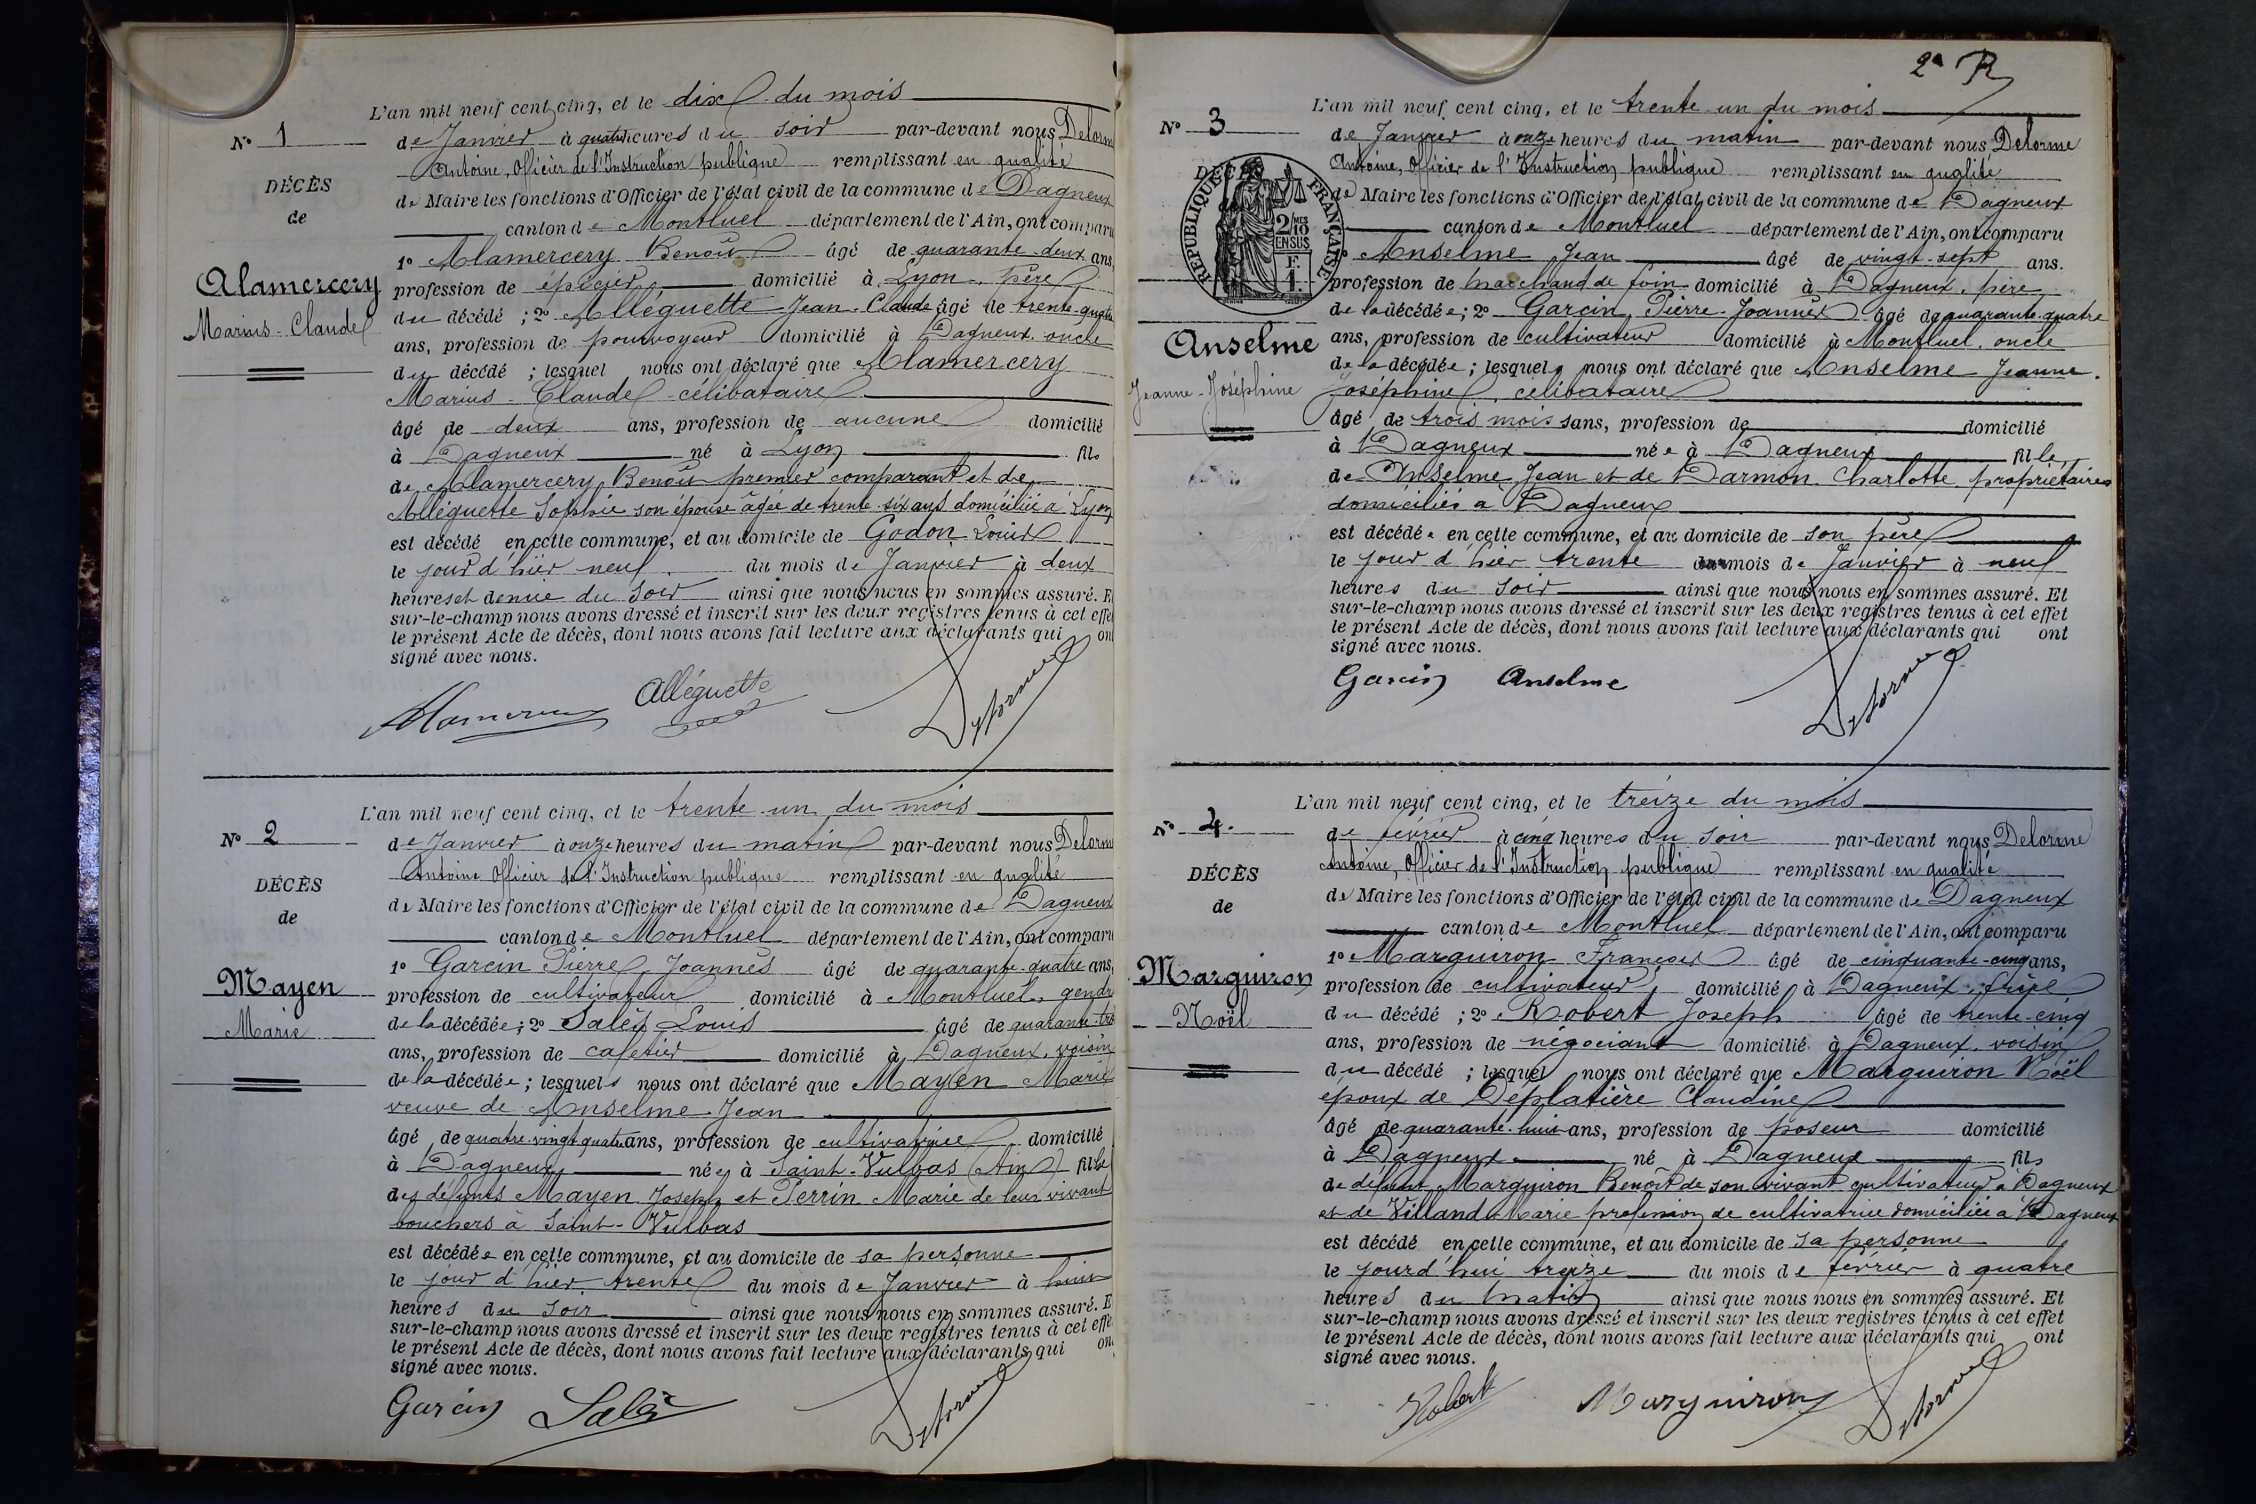 L'an mil neuf cent cinq, et le dix du mois
N° 1
de Janvier à quatre heures du soir par-devant nous Delorme
Antoine, Officier de l'Instruction publique remplissant en qualité
DÉCÈS
de Maire les fonctions d'Officier de l'état civil de la commune de Dagneux
de
canton de Montluel département de l'Ain, ont comparu
1° Alamercery Benoît âgé de quarante-deux ans,
Alamercery
profession de épicier, domicilié à Lyon, père
du décédé ; 2° Alléguette Jean-Claude âgé de trente-quatre
Marius-Claude
ans, profession de pourvoyeur domicilié à Dagneux, oncle
du décédé ; lesquel nous ont déclaré que Alamercery
Marius-Claude célibataire
âgé de deux ans, profession de aucune domicilié
à Dagneux né à Lyon fils
de Alamercery Benoît premier comparant et de
Alléguette Sophie son épouse âgée de trente-six ans domiciliée à Lyon
est décédé en cette commune, et au domicile de Godon Louis
le jour d'hier neuf du mois de Janvier à deux
heures et demie du soir ainsi que nous nous en sommes assuré. Et
sur-le-champ nous avons dressé et inscrit sur les deux registres tenus à cet effet
le présent Acte de décès, dont nous avons fait lecture aux déclarants qui ont
signé avec nous.
Alléguette
Delorme
L'an mil neuf cent cinq, et le trente un du mois
N° 2
de Janvier à onze heures du matin par-devant nous Delorme
Antoine Officier de l'Instruction publique remplissant en qualité
DÉCÈS
de Maire les fonctions d'Officier de l'état civil de la commune de Dagneux
de
canton de Montluel département de l'Ain, ont comparu
1° Garcin Pierre Joannès âgé de quarante-quatre ans,
Mayen
profession de cultivateur domicilié à Montluel, gendre
Marie
de la décédée ; 2° Saley Louis âgé de quarante-trois
ans, profession de cafetier domicilié à Dagneux, voisin
de la décédée ; lesquels nous ont déclaré que Mayen Marie
veuve de Anselme Jean
âgé de quatre-vingt-quatre ans, profession de cultivatrice domicilié
à Dagneux née à Saint-Vulbas (Ain) fille
des défunts Mayen Joseph et Perrin Marie de leur vivant
bouchers à Saint-Vulbas
est décédée en cette commune, et au domicile de sa personne
le jour d'hier trente du mois de Janvier à huit
heures du soir ainsi que nous nous en sommes assuré. Et
sur-le-champ nous avons dressé et inscrit sur les deux registres tenus à cet effet
le présent Acte de décès, dont nous avons fait lecture aux déclarants qui ont
signé avec nous.
Garcin
Delorme
2e R
L'an mil neuf cent cinq, et le trente un du mois
N° 3
de Janvier à onze heures du matin par-devant nous Delorme
Antoine, Officier de l'Instruction publique remplissant en qualité
DÉCÈS
RÉPUBLIQUE FRANÇAISE
2/10 MES
EN SUS
F.
1.
de Maire les fonctions d'Officier de l'état civil de la commune de Dagneux
canton de Montluel département de l'Ain, ont comparu
1° Anselme Jean âgé de vingt-sept ans.
profession de marchand de foin domicilié à Dagneux, père
de la décédée ; 2° Garcin Pierre-Joannès âgé de quarante-quatre
Anselme
ans, profession de cultivateur domicilié à Montluel, oncle
de la décédée ; lesquels nous ont déclaré que Anselme Jeanne-
Jeanne-Joséphine
Joséphine, célibataire
âgé de trois mois sans, profession de domicilié
à Dagneux née à Dagneux fille
de Anselme Jean et de Darmon Charlotte propriétaires
domiciliés à Dagneux
est décédée en cette commune, et au domicile de son père
le jour d'hier trente du mois de Janvier à neuf
heures du soir ainsi que nous nous en sommes assuré. Et
sur-le-champ nous avons dressé et inscrit sur les deux registres tenus à cet effet
le présent Acte de décès, dont nous avons fait lecture aux déclarants qui ont
signé avec nous.
Garcin Anselme
Delorme
L'an mil neuf cent cinq, et le treize du mois
N° 4.
de février à cinq heures du soir par-devant nous Delorme
Antoine, Officier de l'Instruction publique remplissant en qualité
DÉCÈS
de Maire les fonctions d'Officier de l'état civil de la commune de Dagneux
de
canton de Montluel département de l'Ain, ont comparu
1° Marguiron François âgé de cinquante-cinq ans,
Marguiron
profession de cultivateur, domicilié à Dagneux, frère
Noël
du décédé ; 2° Robert Joseph âgé de trente-cinq
ans, profession de négociant domicilié à Dagneux, voisin
du décédé ; lesquel nous ont déclaré que Marguiron Noël
époux de Déplatière Claudine
âgé de quarante-huit ans, profession de poseur domicilié
à Dagneux né à Dagneux fils
de défunt Marguiron Benoît de son vivant cultivateur à Dagneux
et de Villand Marie profession de cultivatrice domiciliée à Dagneux
est décédé en cette commune, et au domicile de sa personne
le jourd'hui treize du mois de février à quatre
heures du matin ainsi que nous nous en sommes assuré. Et
sur-le-champ nous avons dressé et inscrit sur les deux registres tenus à cet effet
le présent Acte de décès, dont nous avons fait lecture aux déclarants qui ont
signé avec nous.
Robert Marguiron
Delorme